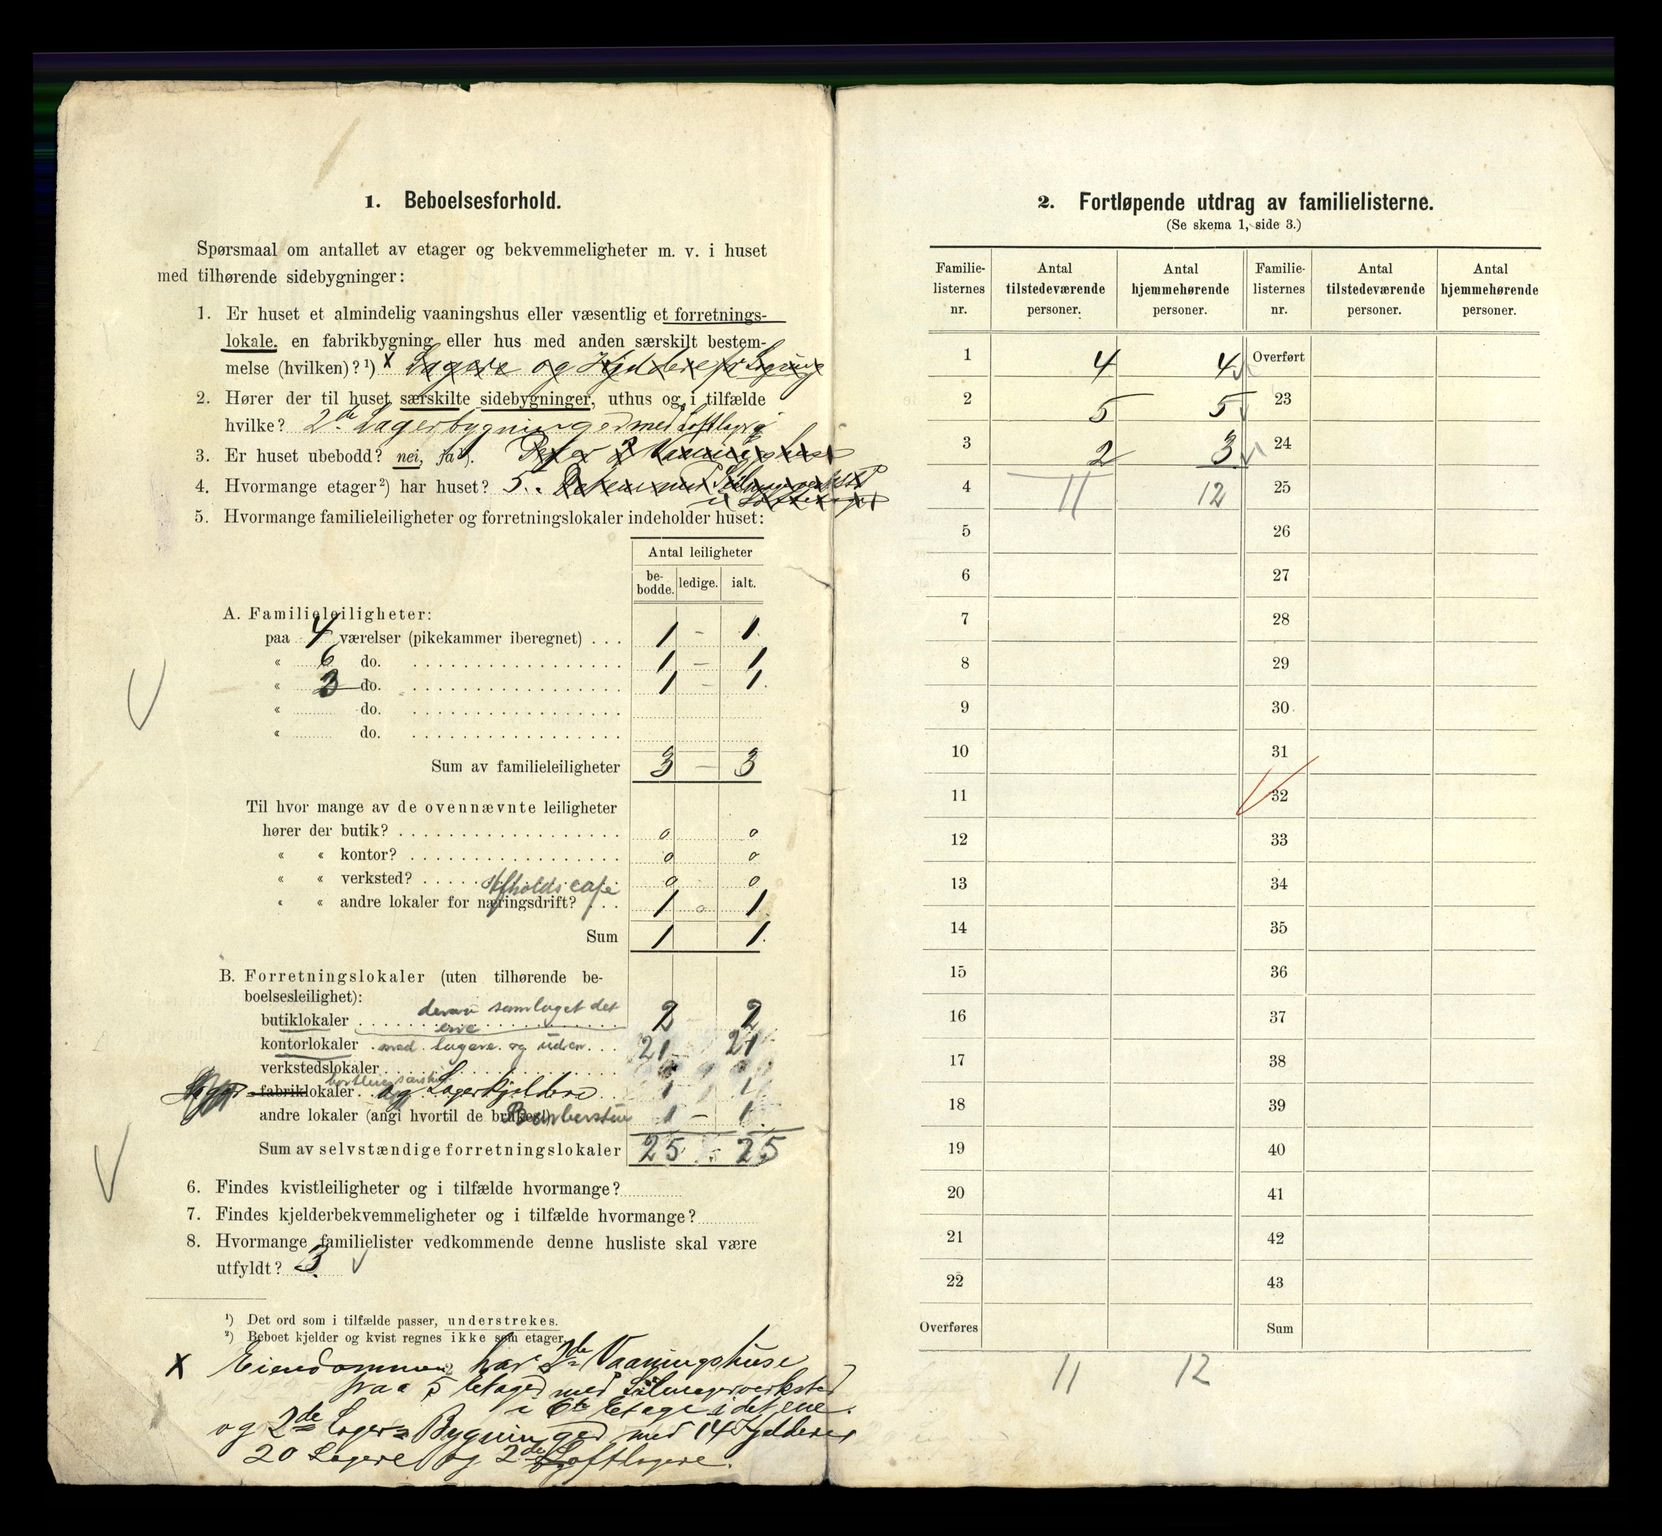 1. Beboelsesforhold.
Spørsmaal om antallet av etager og bekvemmeligheter m. v. i huset
med tilhørende sidebygninger:
1. Er huset et almindelig vaaningshus eller væsentlig et forretnings-
lokale, en fabrikbygning eller hus med anden særskilt bestem-
melse (hvilken)?¹) x Lagere og Kjeldere for
2. Hører der til huset særskilte sidebygninger, uthus og i tilfælde
hvilke? 2de Lagerbygninger med Loftlager
3. Er huset ubebodd? nei, ja¹). Vaaningshuse
4. Hvormange etager²) har huset? 5.
5. Hvormange familieleiligheter og forretningslokaler indeholder huset:
Antal leiligheter
be-bodde. ledige. ialt.
A. Familieleiligheter:
paa 4 værelser (pikekammer iberegnet) . . . 1 - 1.
« 6 do. 1 - 1
« 3 do. 1 - 1.
« do.
« do.
Sum av familieleiligheter 3 - 3
Til hvor mange av de ovennævnte leiligheter
hører der butik? 0 0
« « kontor? 0 0
« « verksted? 0 0
Afholdscafe
« « andre lokaler for næringsdrift? . . . 1 0 1.
Sum 1 1.
B. Forretningslokaler (uten tilhørende be-
boelsesleilighet):
derav samlaget det
butiklokaler ene 2 2
kontorlokaler med lagere og uden 21 21
verkstedslokaler
fabriklokaler og Lagerkjeldere 1 1
andre lokaler (angi hvortil de brukes): Barberstue 1 - 1.
Sum av selvstændige forretningslokaler 25 25
6. Findes kvistleiligheter og i tilfælde hvormange?
7. Findes kjelderbekvemmeligheter og i tilfælde hvormange?
8. Hvormange familielister vedkommende denne husliste skal være
utfyldt? 3.
¹) Det ord som i tilfælde passer, understrekes.
²) Beboet kjelder og kvist regnes ikke som etager.
x Eiendommen har 2de Vaaningshuse
paa 5 Etager med Seilmagerverksted
i 6te Etage i det ene.
og 2de Lager Bygninger med 14 Kjeldere
20 Lagere og 2de Loftlagere.
2. Fortløpende utdrag av familielisterne.
(Se skema 1, side 3.)
Familie-listernes nr. Antal tilstedeværende personer. Antal hjemmehørende personer. Familie-listernes nr. Antal tilstedeværende personer. Antal hjemmehørende personer.
1 4 4 Overført
2 5 5 23
3 2 3 24
4 11 12 25
5 26
6 27
7 28
8 29
9 30
10 31
11 32
12 33
13 34
14 35
15 36
16 37
17 38
18 39
19 40
20 41
21 42
22 43
Overføres Sum
11 12